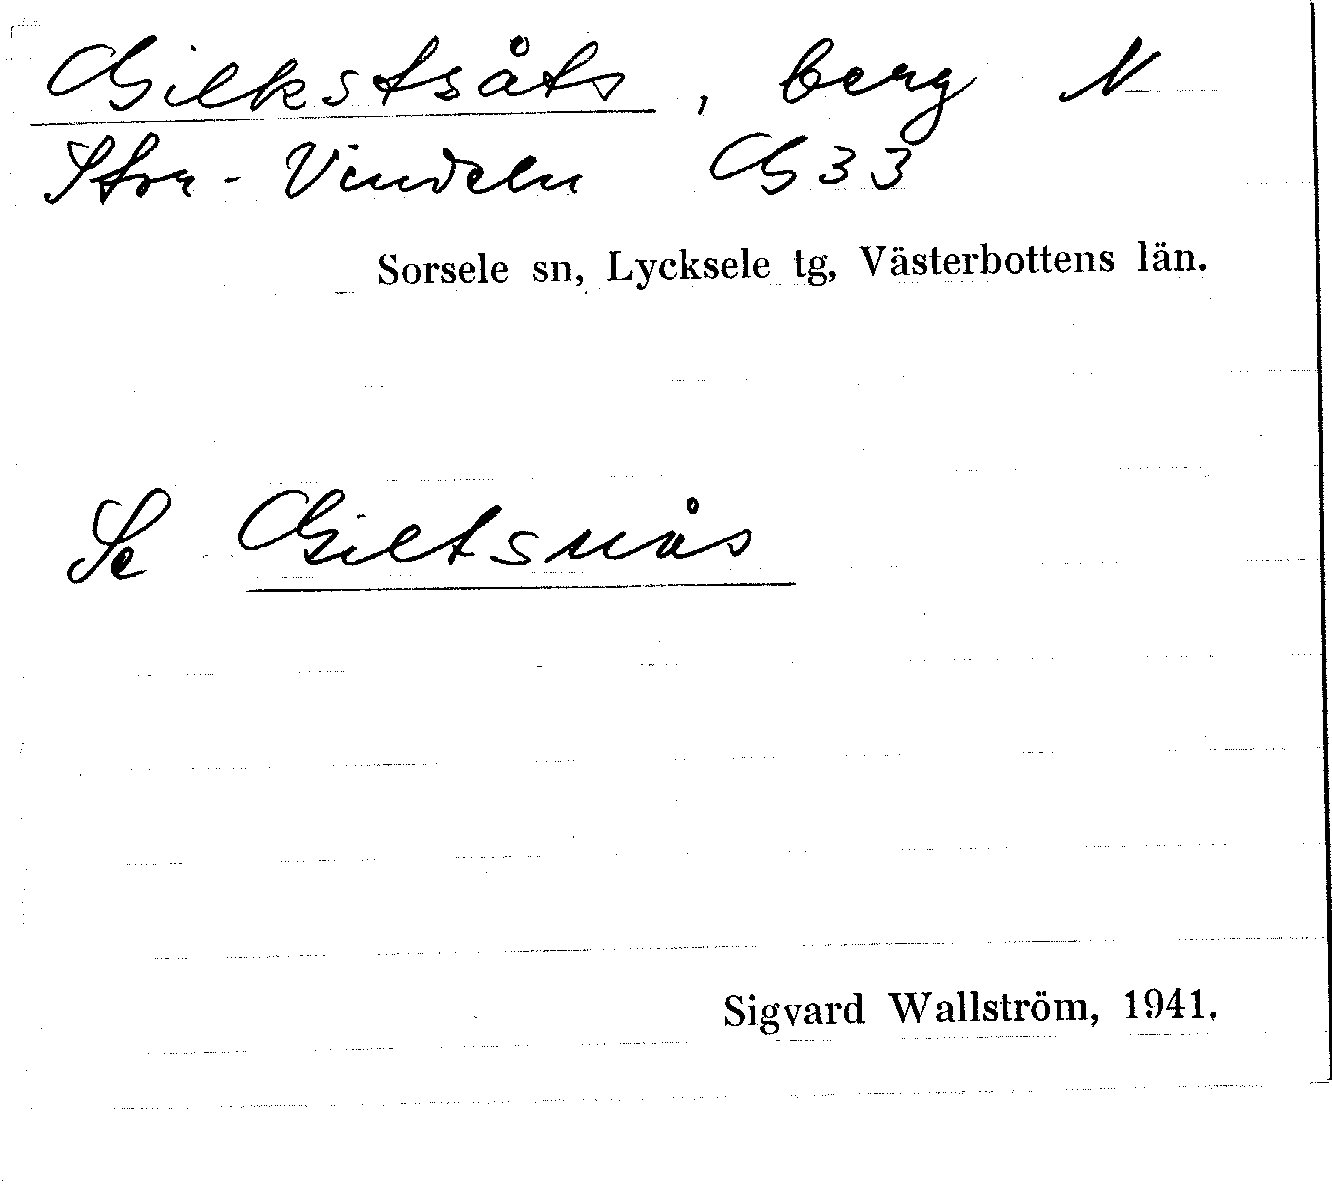 Gilkstsåts, berg N
Stor-Vindeln G33
Sorsele sn, Lycksele tg, Västerbottens län.
Se Giltsnås
Sigvard Wallström, 1941.